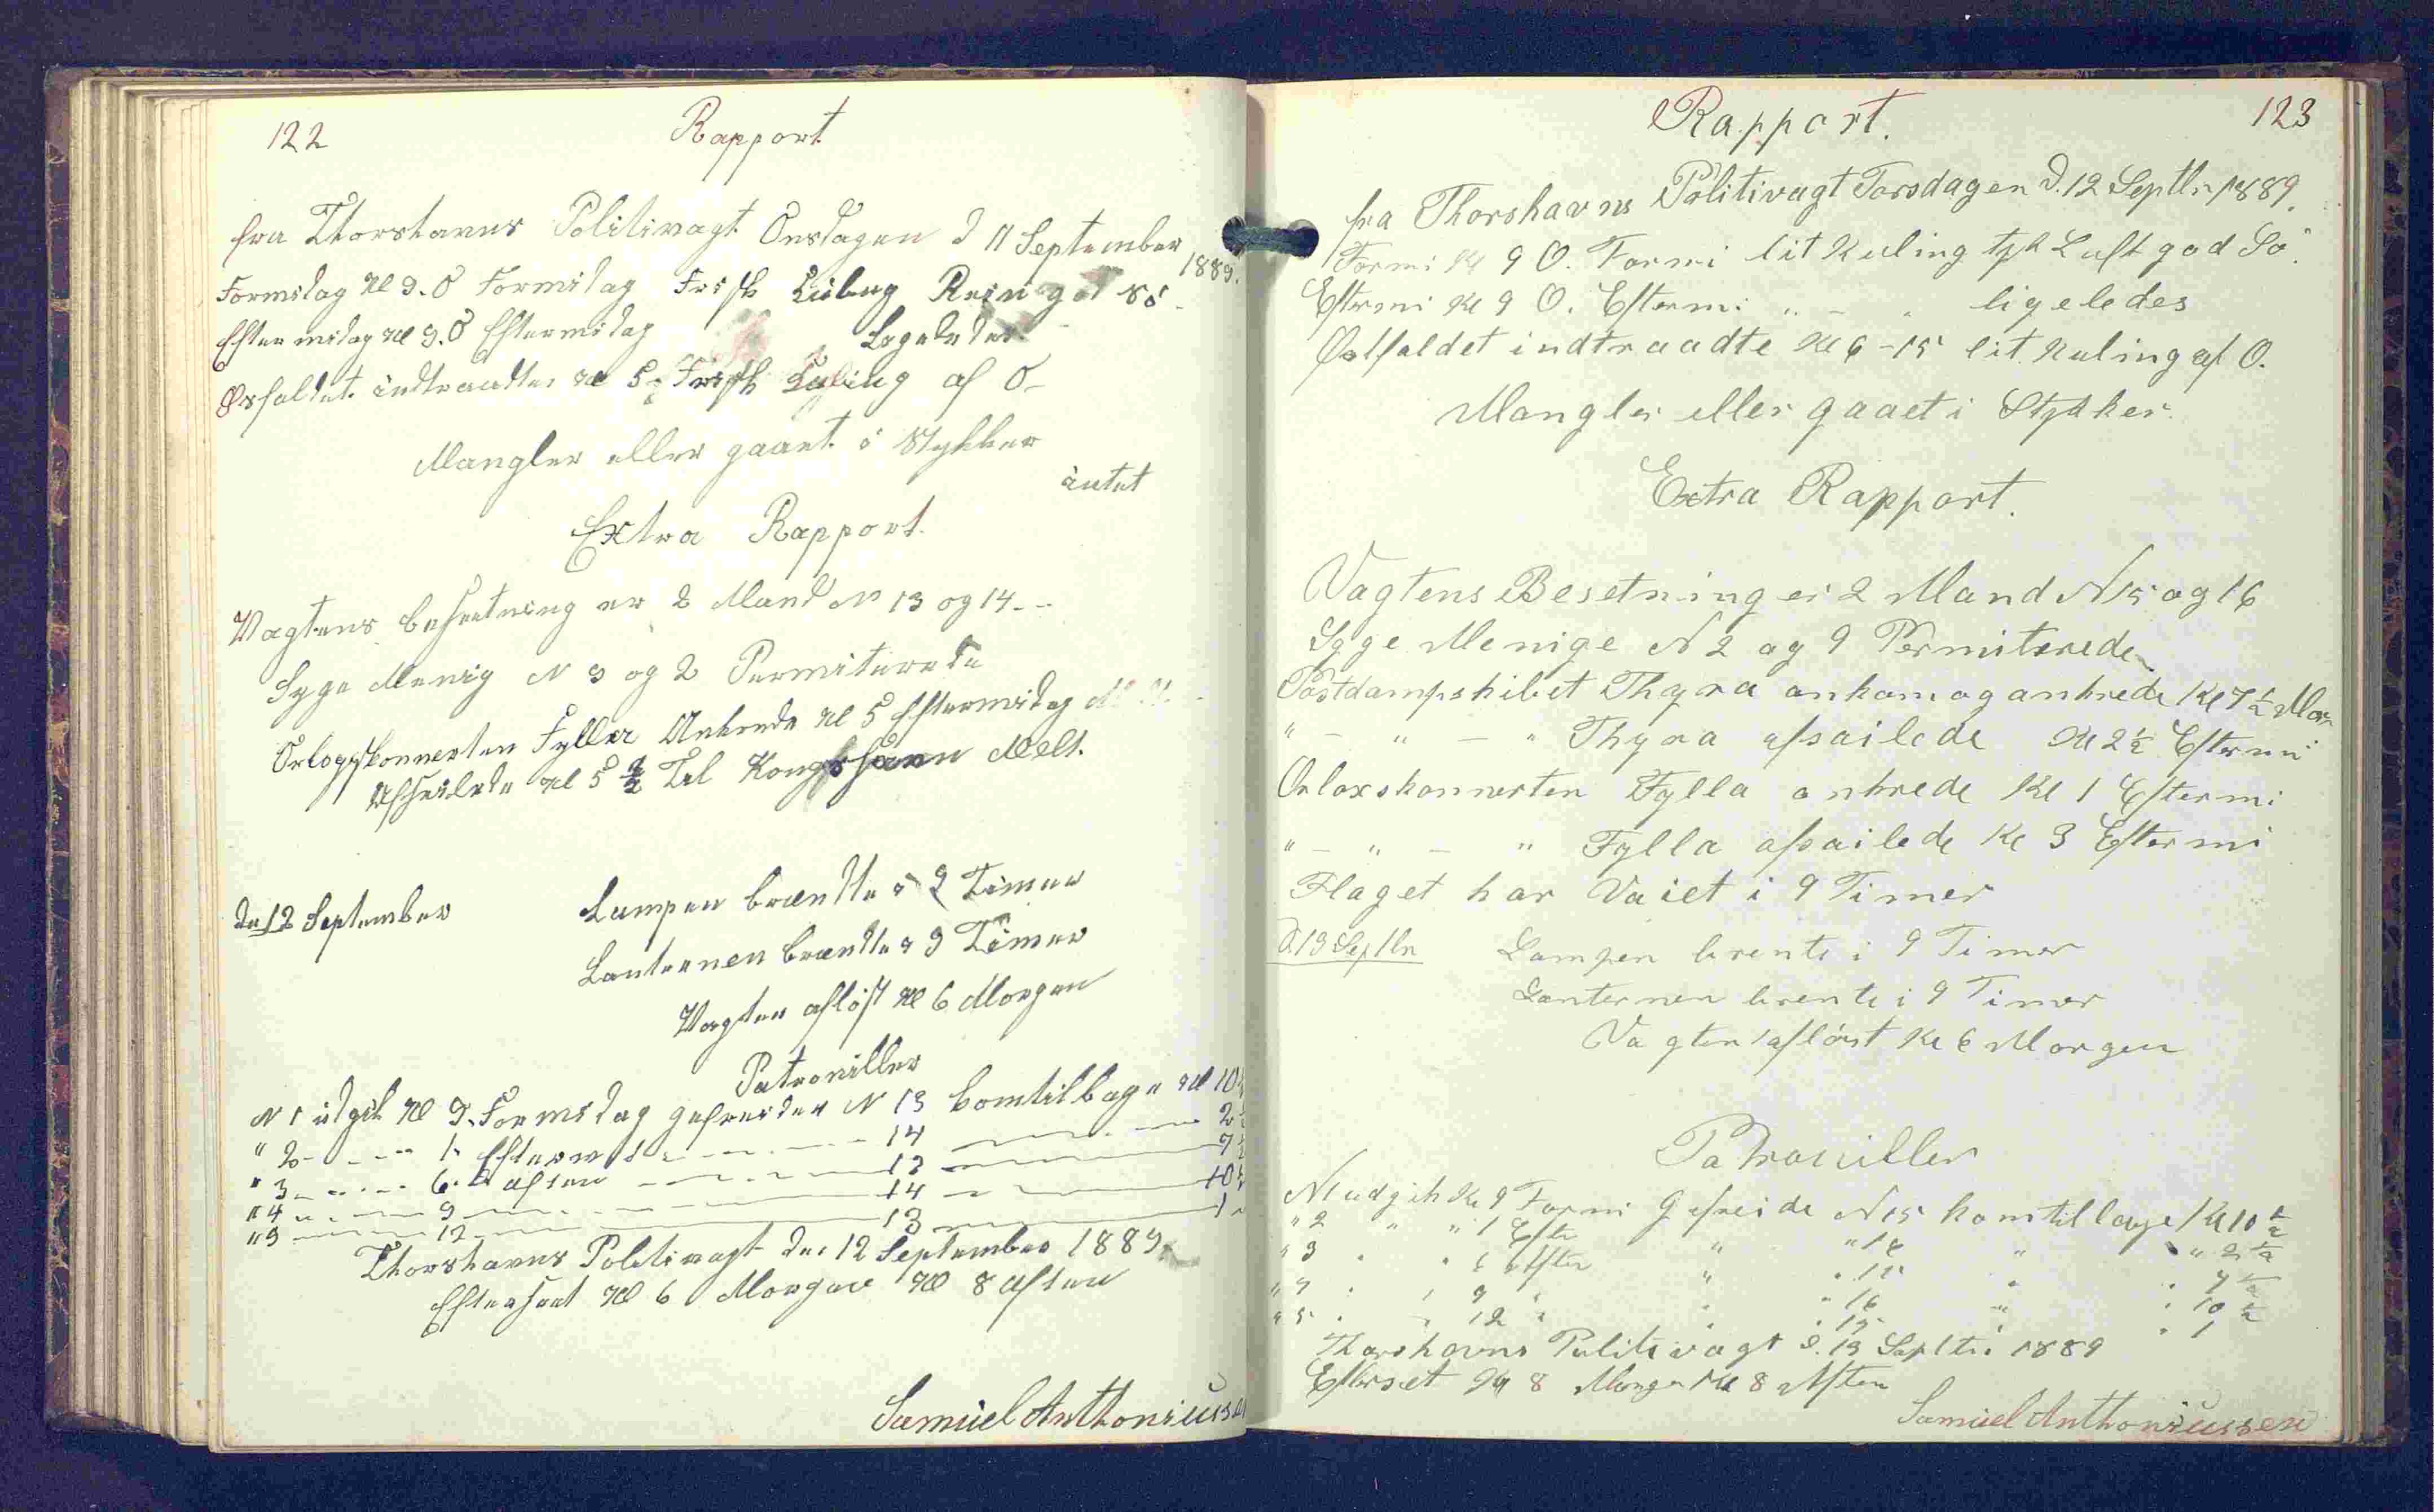 122
Rapport
fra Thorshavns Politivagt Onsdagen d 11 September 1889.
Formidag Kl 9. O Formidag Frisk Kuling Regn god Sö
Eftermidag Kl 9. O Eftermidag Ligeledes
Østfaldet indtraadte Kl 5 Frisk Kuling af O
Mangler eller gaaet i Stykker
intet
Extra Rapport.
Vagtens besætning er 2 Mand N 13 og 14
Syge Menig N 9 og 2 Permiterede
Orlogskonnerten Fylla Ankrede Kl 5 Eftermidag
Afseilede Kl 5 1/2 Til Kongshavn
den 12 September Lampen brændte i 9 Timer
Lanternen brændte i 9 Timer
Vagten aflöst Kl 6 Morgen
Patrouiller
N 1 udgik Kl 9. Formidag gefreider N 13 komtilbage Kl 10 1/2
" 2 1 Efterm 14 2 1/2
" 3 6 aften 13 7 1/2
" 4 9 14 10 1/2
" 5 12 13 1
Thorshavns Politivagt den 12 September 1889
Efterseet Kl 6 Morgen Kl 8 Aften
Samüel Anthoniüssen
Rapport.
123
fra Thorshavns Politivagt Torsdagen d. 12 Septbr 1889.
Formi Kl 9 O. Formi lit Kuling tyk Luft god Sö.
Eftermi Kl 9 O. Eftermi " - " ligeledes
Østfaldet indtraadte Kl 6-15 lit Kuling af O.
Mangler eller gaaet i Stykker.
Extra Rapport.
Vagtens Besetning er 2 Mand N 15 og 16
Syge Menige N 2 og 9 Permiterede
Postdampskibet Thyra ankom og ankrede Kl 7 1/2 Mor
" - " - " Thyra afsailede Kl 2 1/2 Eftermi
Orloxskonnerten Fylla ankrede Kl 1 Eftermi
" - " - " Fylla afsailede Kl 3 Eftermi
Flaget har Vaiet i 9 Timer
d. 13 Septbr Lampen brente i 9 Timer
Lanternen brente i 9 Timer
Vagten aflöst Kl 6 Morgen
Patrouiller
N 1 udgik Kl 9 Formi Gefreide N 15 komtilbage Kl 10 1/2
" 2 " " 1 Efter " " 16 " " 2 1/2
" 3 " " 6 Aften " " 15 " " 7 1/2
" 4 " " 9 " " " 16 " " 10 1/2
" 5 " " 12 " " " 15 " " 1
Thorshavns Politivagt d. 13 Septbr 1889
Efterset Kl 8 Morgen Kl 8 Aften
Samüel Anthoniüssen